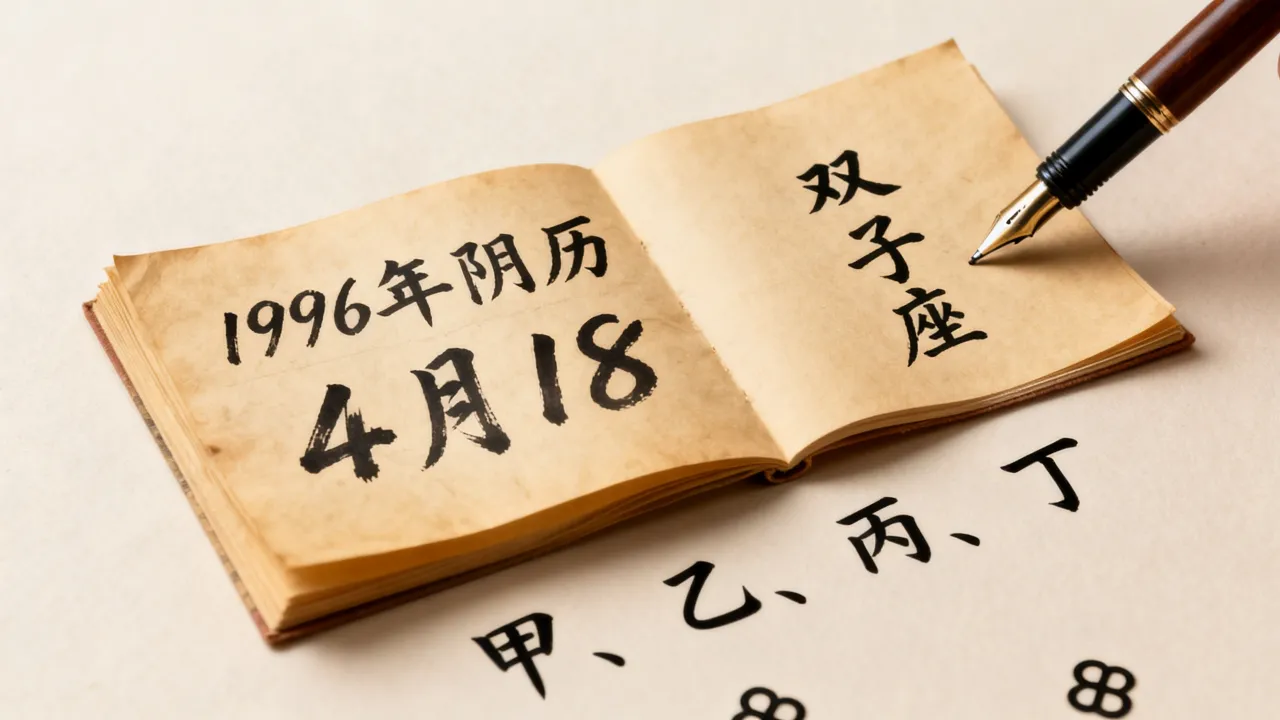 1996年阴历
4月18
双子座
甲、乙、丙、丁